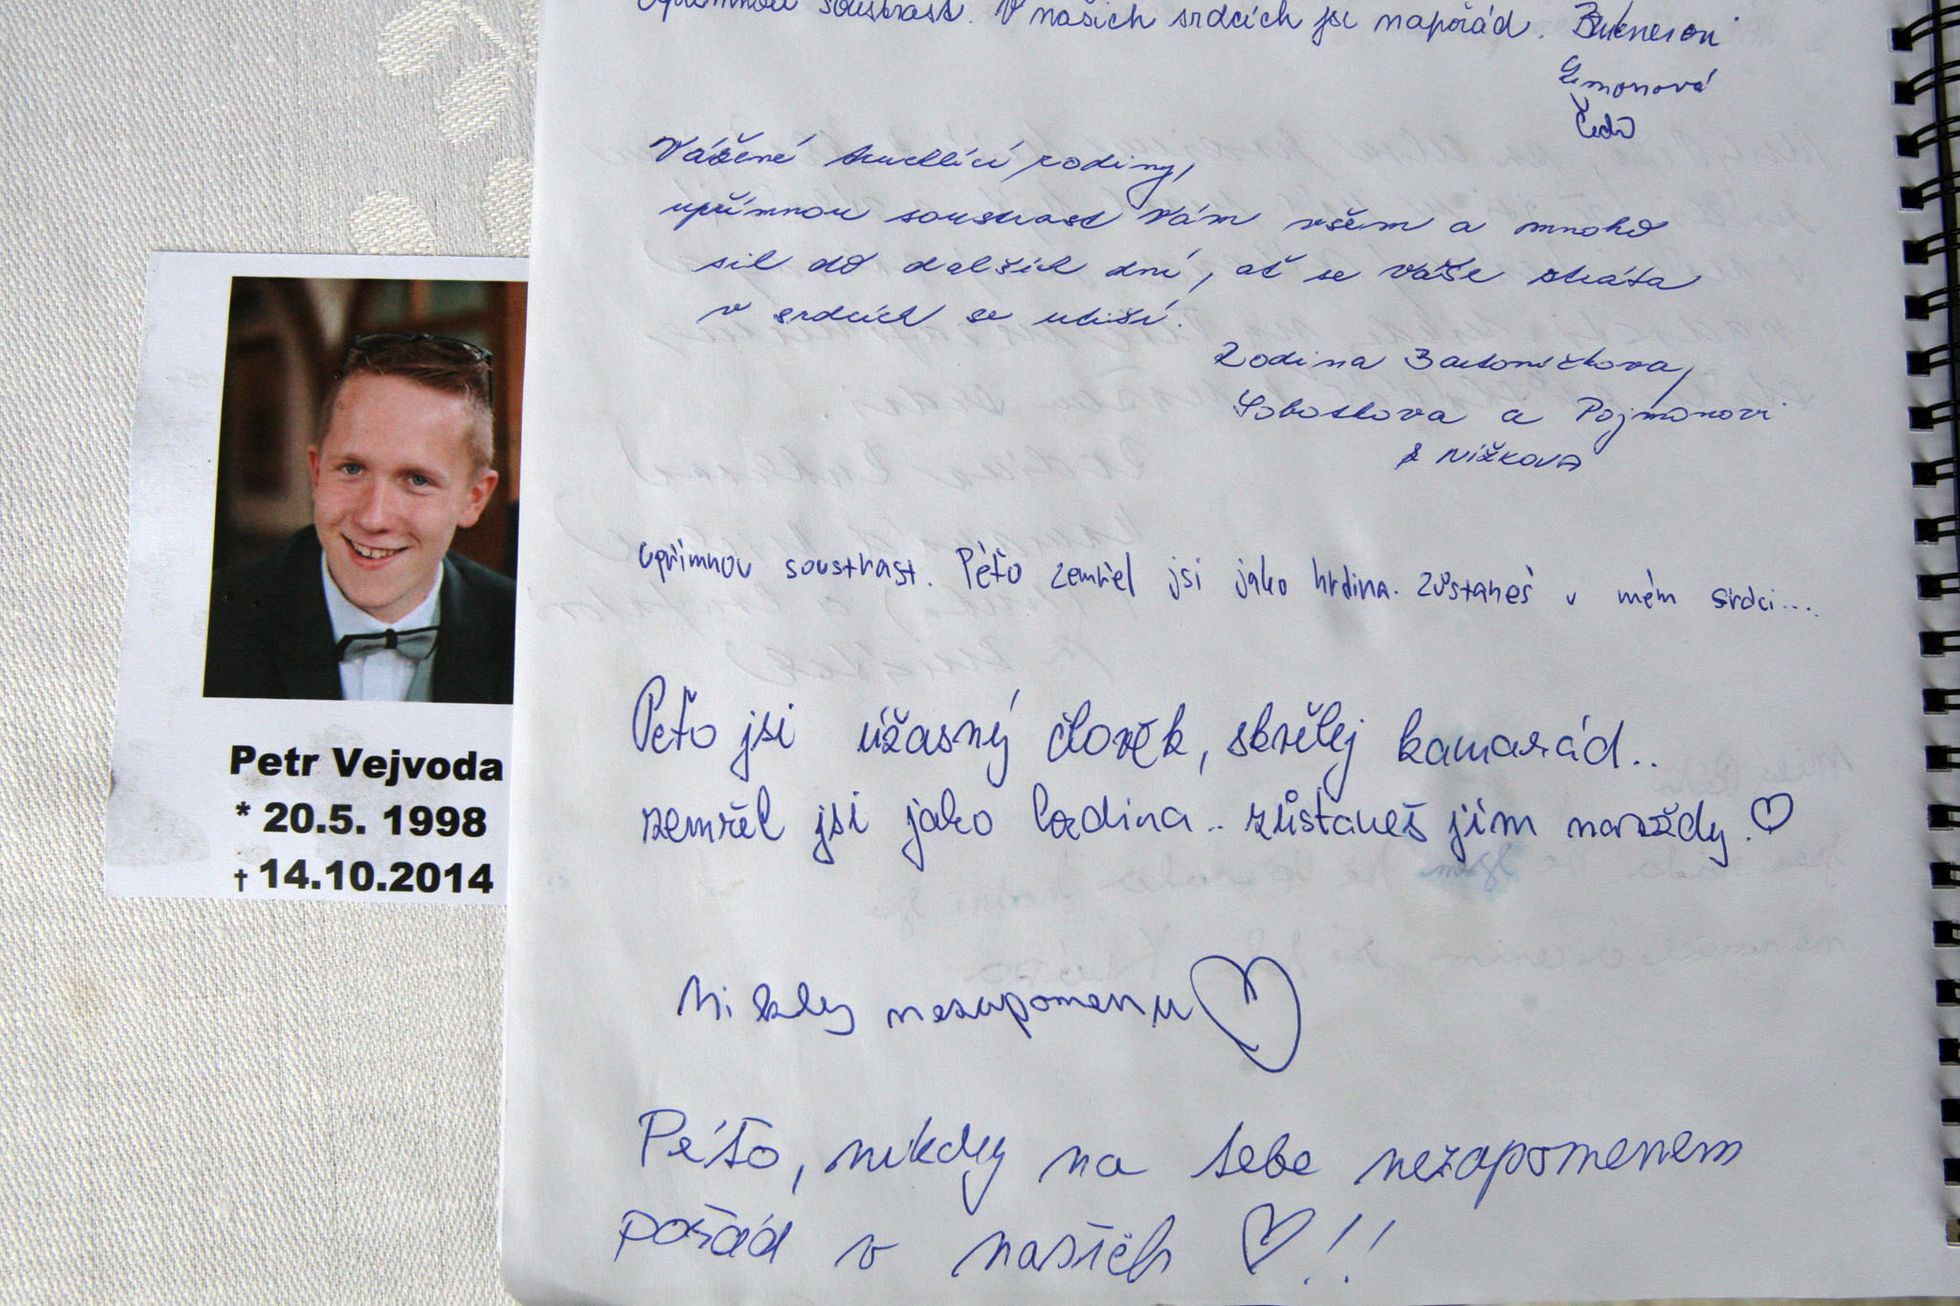 Upřímnou soustrast. V našich srdcích jsi napořád.
Vážené truchlící rodiny,
upřímnou soustrast Vám všem a mnoho
sil do dalších dní, ať se Vaše ztráta
v srdcích se utiší.
Rodina Bartoníčkova,
Sobotkova a Pojmonovi
& NÍŽKOVA
upřímnou soustrast. Péťo zemřel jsi jako hrdina. Zůstaneš v mém srdci...
Péťo jsi úžasný člověk, skvělej kamarád..
zemřel jsi jako hrdina.. zůstaneš jím navždy. ♡
Nikdy nezapomenu ♡
Péťo, nikdy na tebe nezapomenem
pořád v našich ♡!!
Petr Vejvoda
* 20.5. 1998
† 14.10.2014